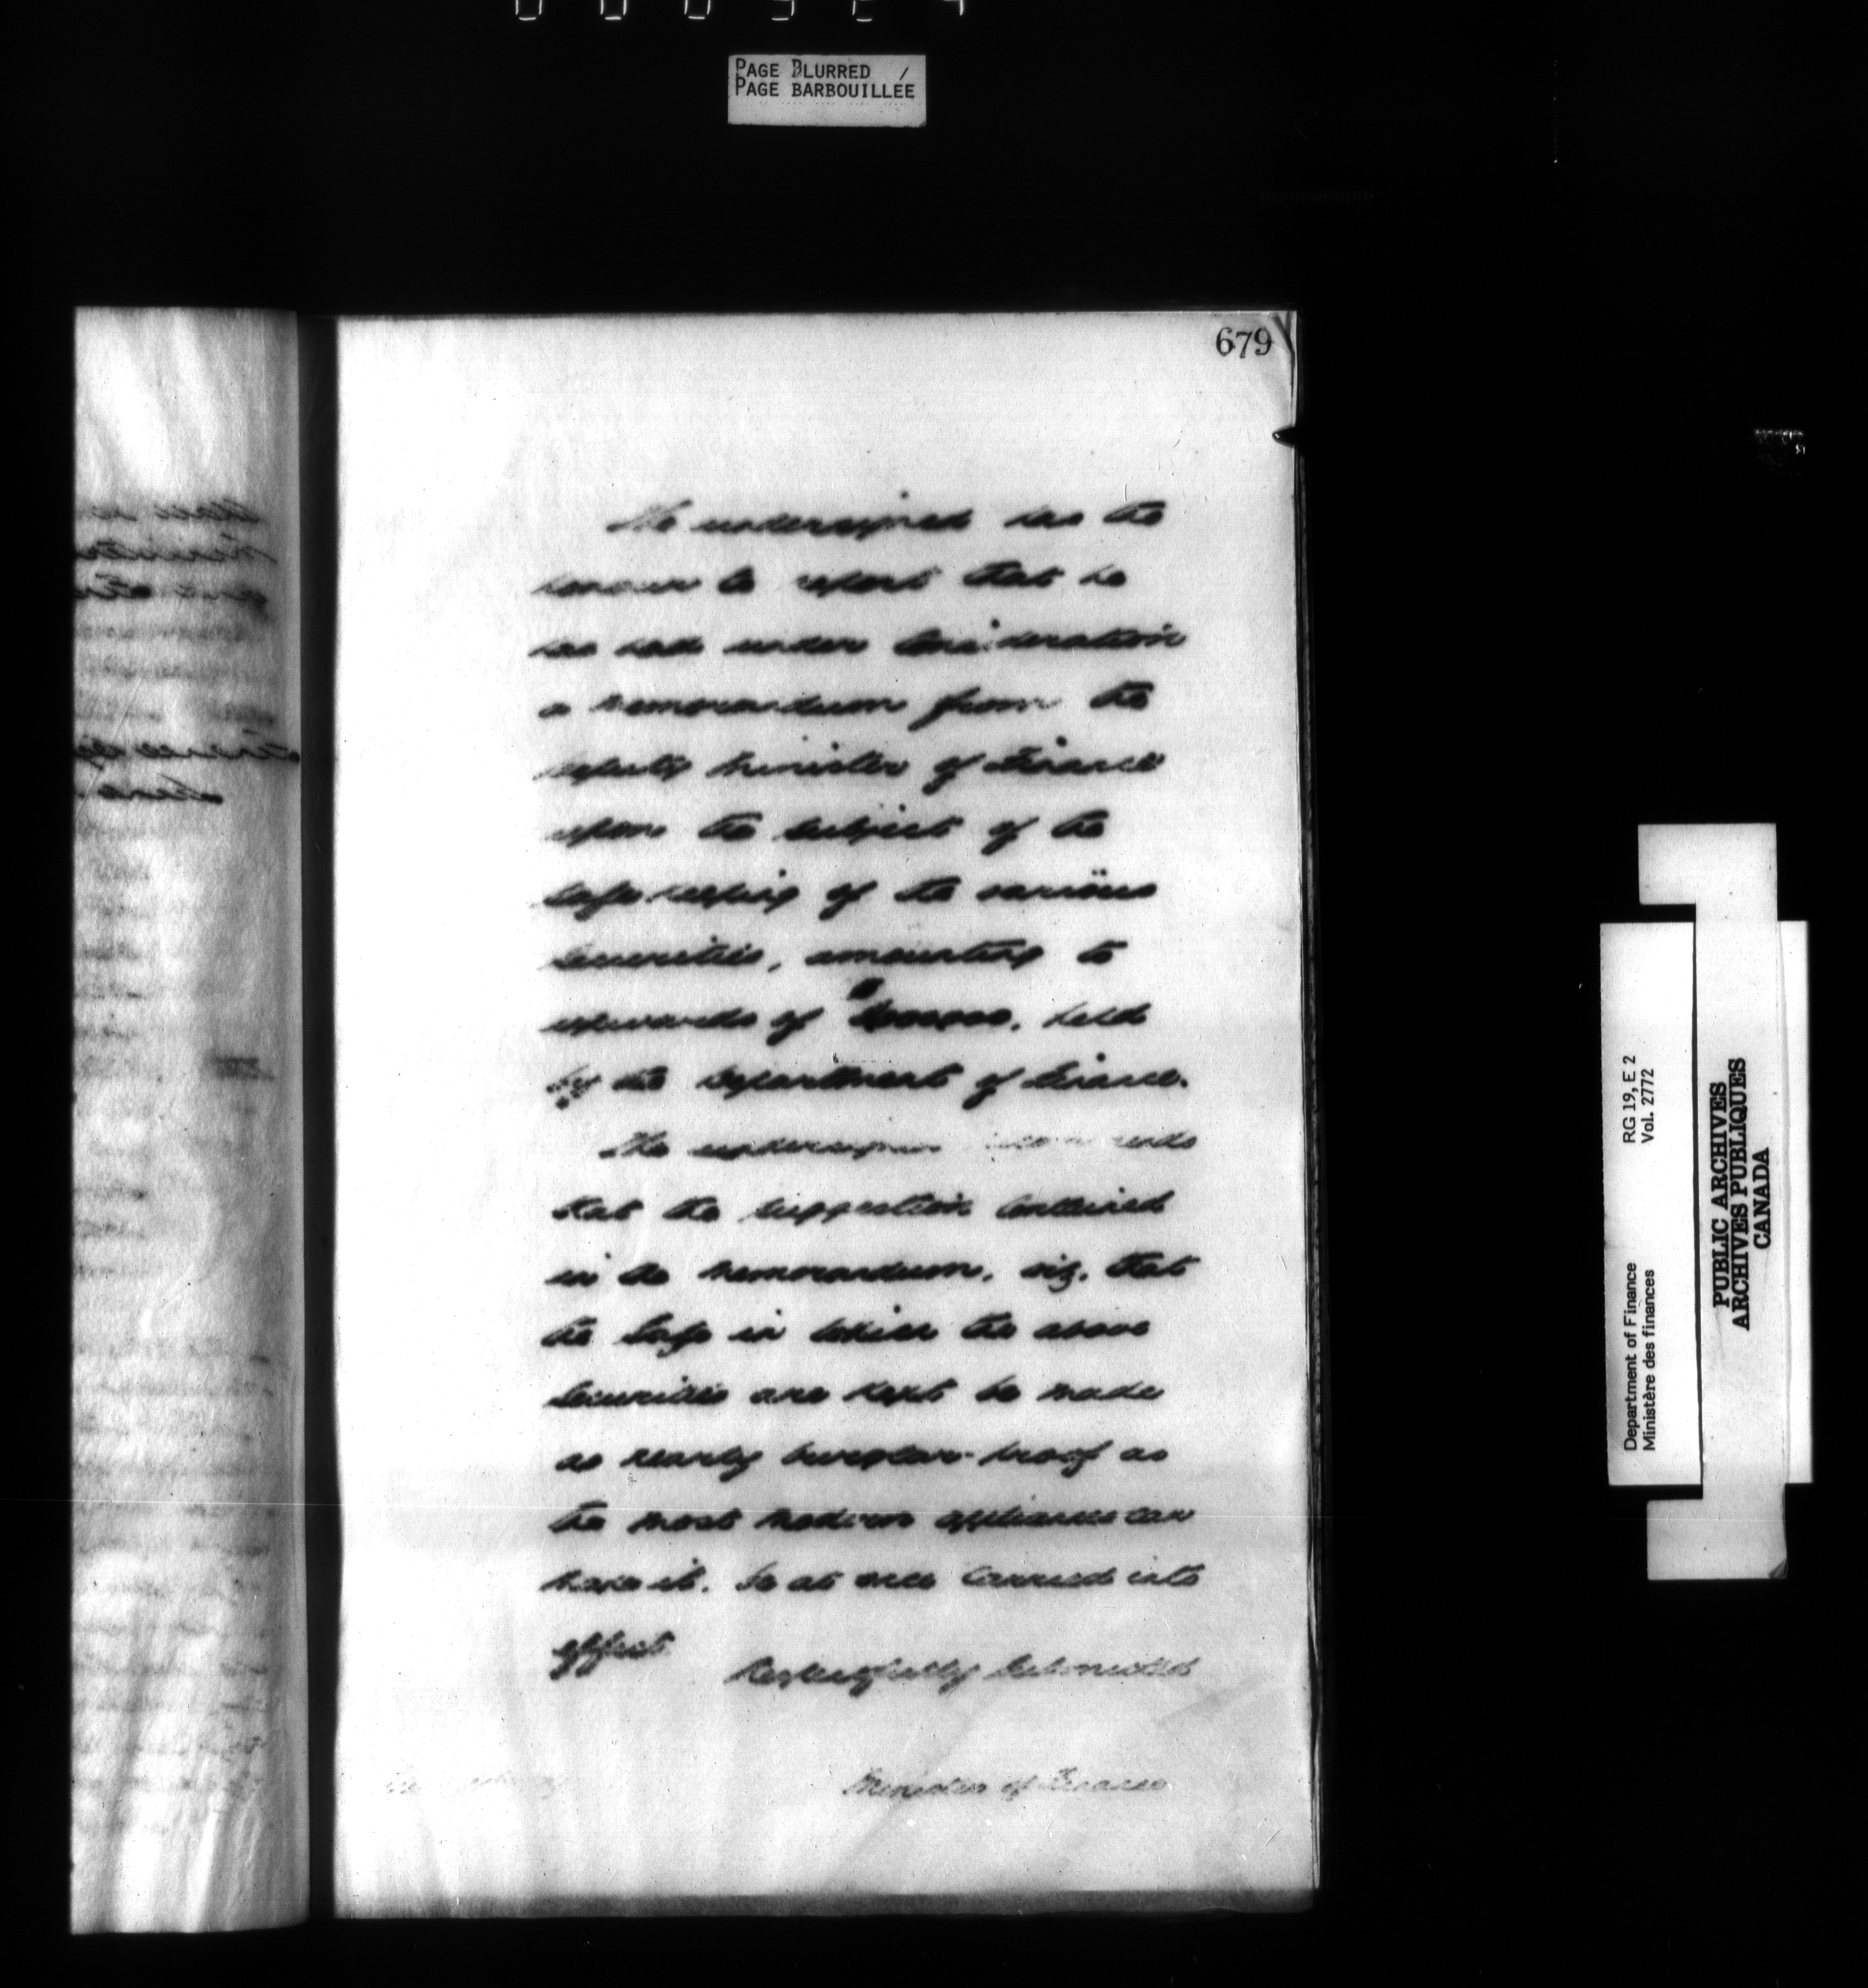 PAGE BLURRED /
PAGE BARBOUILLÉE
679
The undersigned has the
honour to report that he
has had under Consideration
a Memorandum from the
Deputy Minister of Finance
upon the Subject of the
Safe keeping of the various
Securities, amounting to
upwards of held
by the Department of Finance.
The undersigned recommends
that the Suggestion Contained
in the Memorandum, viz. that
the Safe in which the above
Securities are kept be made
as nearly burglar-proof as
the most modern appliances can
make it. be at once Carried into
effect
Respectfully Submitted
Minister of Finance
Department of Finance RG 19, E 2
Ministère des finances Vol. 2772
PUBLIC ARCHIVES
ARCHIVES PUBLIQUES
CANADA